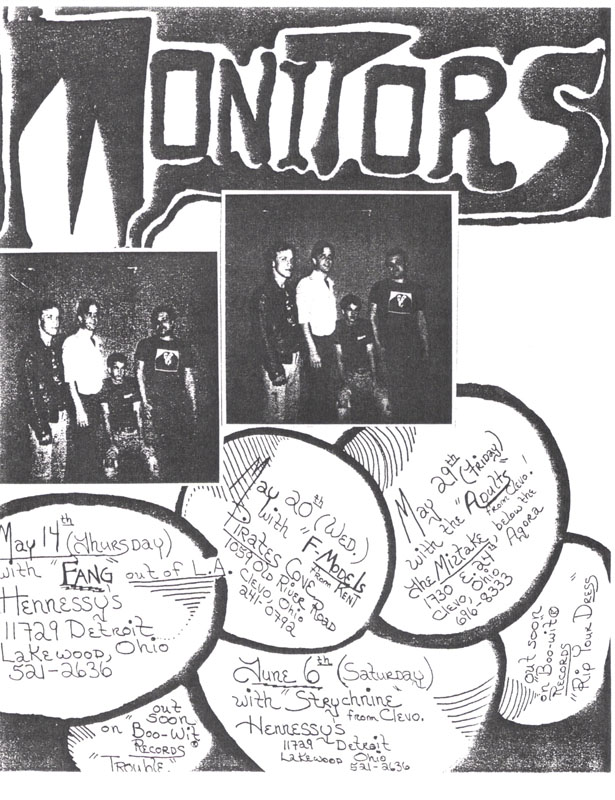 MONITORS
May 14th (Thursday)
with "FANG" out of L.A.
Hennessys
11729 Detroit
Lakewood, Ohio
521-2636
May 20th (WED.)
with "F-Models"
FROM KENT
Pirates Cove
1059 Old River Road
Clevo, Ohio
241-0792
May 29th (Friday)
with the "Adults"
from Clevo.
the Mistake below the
Agora
1730 E. 24th
Clevo, Ohio
696-8333
out soon
on Boo-wit®
RECORDS
"Rip Your Dress"
June 6th (Saturday)
with "Strychnine"
from Clevo.
Hennessys
11729 Detroit
Lakewood Ohio
521-2636
out
soon
on Boo-Wit®
RECORDS
"Trouble"